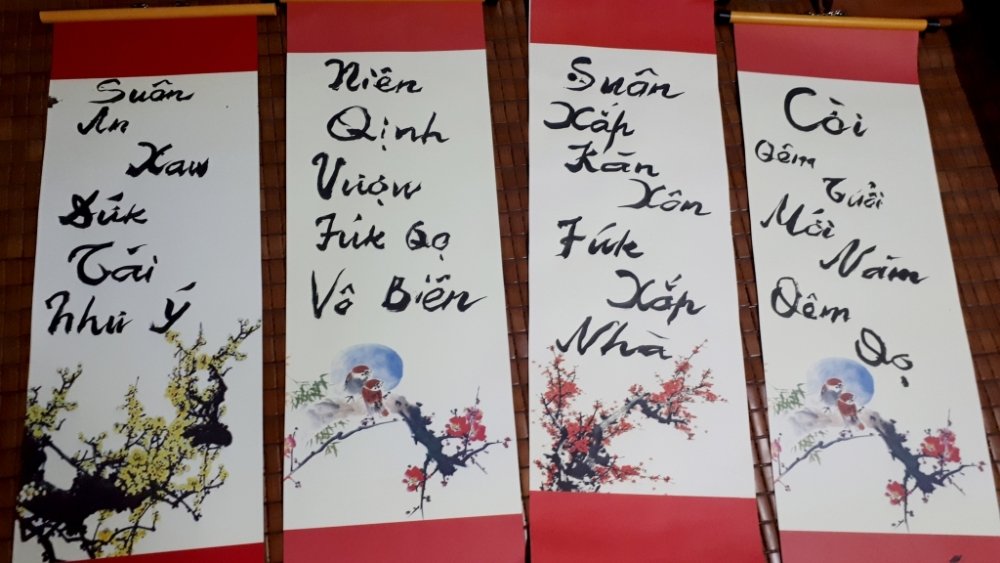 Suân
An
Xaw
Dứk
Tài
Như ý
Niên
Qịnh
Vượw
Fúk Qọ
Vô Biên
Suân
Xắp
Kàn
Xôn
Fúk
Xắp
Nhà
Cời
Qêm
Tuổi
Mới
Năm
Qêm
Qọ